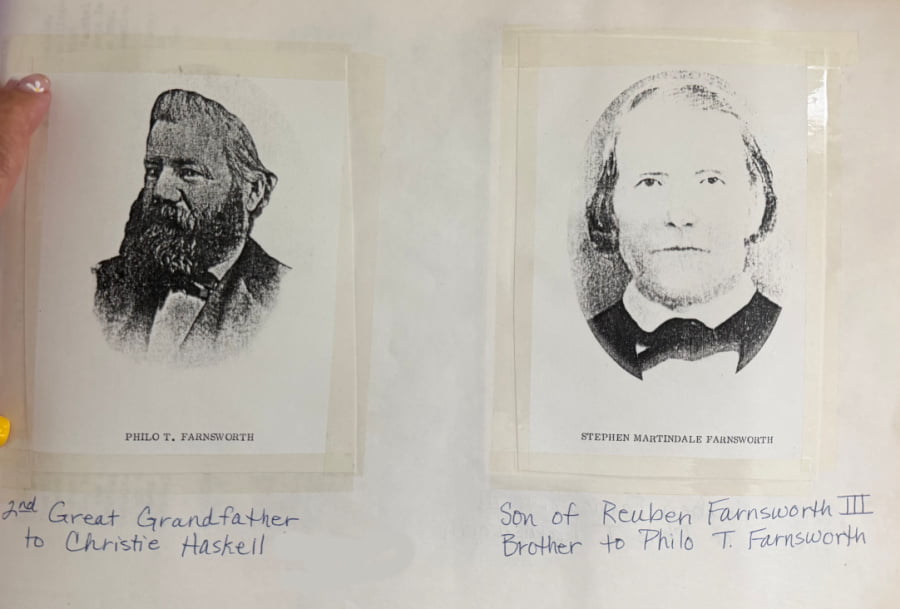 PHILO T. FARNSWORTH
2nd Great Grandfather
to Christie Haskell
STEPHEN MARTINDALE FARNSWORTH
Son of Reuben Farnsworth III
Brother to Philo T. Farnsworth